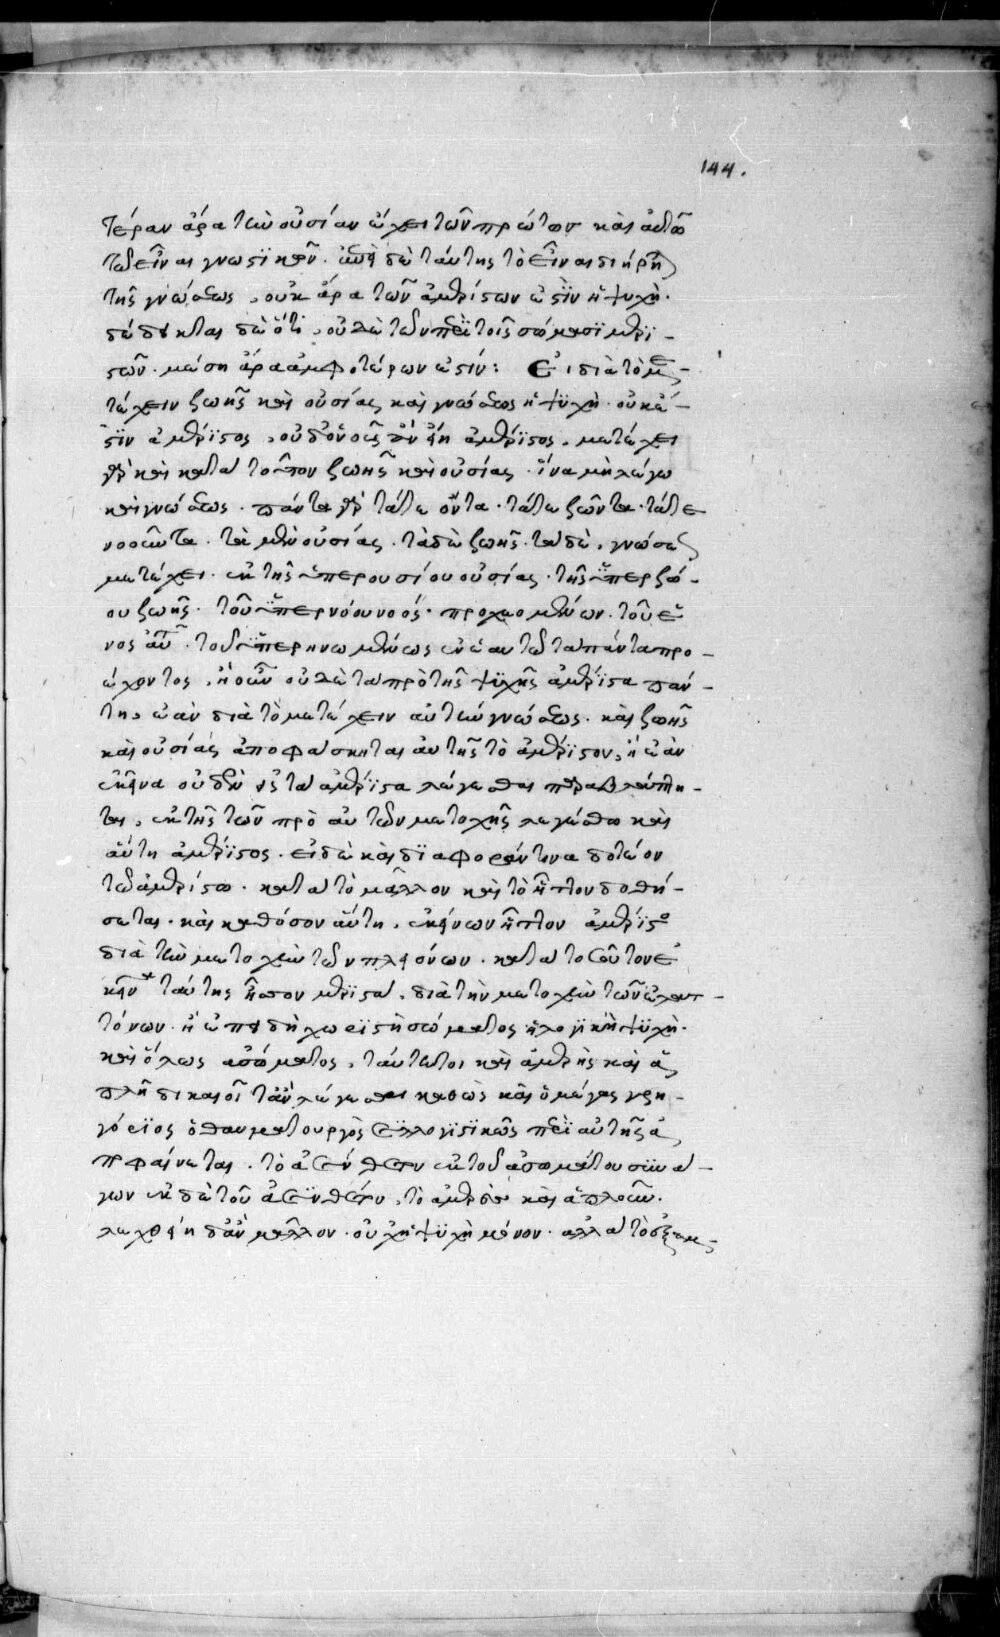 144.
τέραν ἄρα τὴν οὐσίαν ἔχει τῶν πρώτων καὶ αὐτῶ
τῶ εἶναι γνωστικῶν. ἀλλὰ δὲ ταύτης τὸ εἶναι διήρηται
τῆς γνώσεως, οὐκ ἄρα τῶν ἀμερίστων ἐστὶν ἡ ψυχή.
δέδεικται δὲ ὅτι, οὐδὲ τῶν περὶ τοῖς σώμασι μερι-
στῶν. μέση ἄρα ἀμφοτέρων ἐστίν: Εἰ διὰ τὸ με-
τέχειν ζωῆς καὶ οὐσίας καὶ γνώσεως ἡ ψυχὴ οὐκ ἔ-
στιν ἀμέριστος, οὐδ' ὁ νοῦς ἂν εἴη ἀμέριστος. μετέχει
γὰρ καὶ κατὰ τοῦτον ζωῆς καὶ οὐσίας. ἵνα μὴ λέγω
καὶ γνώσεως. πάντα γὰρ τά τε ὄντα. τά τε ζῶντα. τά τε
νοοῦντα. τὰ μὲν οὐσίας. τὰ δὲ ζωῆς. τὰ δὲ, γνώσεως
μετέχει. ἐκ τῆς ὑπερουσίου οὐσίας. τῆς ὑπερζώ-
ου ζωῆς. τοῦ ὑπερνόου νοός. προχεομένων. τοῦ ἑ-
νὸς αὐτοῦ. τοῦ ὑπερηνωμένως ἐν ἑαυτῶ τὰ πάντα προ-
έχοντος, ἢ οὖν οὐδὲ τὰ πρὸ τῆς ψυχῆς ἀμέριστα πάν-
τη, ἐὰν διὰ τὸ μετέχειν αὐτὴν γνώσεως. καὶ ζωῆς
καὶ οὐσίας ἀποφάσκηται αὐτῆς τὸ ἀμέριστον, ἢ ἐὰν
ἐκεῖνα οὐδὲν ἧττα ἀμέριστα λέγεσθαι παραβλάπτη-
ται, ἐκ τῆς τῶν πρὸ αὐτῶν μετοχῆς λεγέσθω καὶ
αὕτη ἀμέριστος. εἰ δὲ καὶ διαφοράν τινα δοτέον
τῶ ἀμερίστω. κατὰ τὸ μᾶλλον καὶ τὸ ἧττον δοθή-
σεται. καὶ καθόσον αὕτη, ἐκείνων ἧττον ἀμέριστο
διὰ τὴν μετοχὴν τῶν πλειόνων. κατὰ τοσοῦτον ἐ-
κεῖν ταύτης ἧττον μεριστὰ, διὰ τὴν μετοχὴν τῶν ἐλατ-
τόνων. ἢ ἐπειδὴ χωριστὴ σώματος ἡ λογικὴ ψυχή.
καὶ ὅλως ἀσώματος, ταύτη τοι καὶ ἀμερὴς καὶ ἁ-
πλῆ δικαίοιτ' ἂν λέγεσθαι καθὼς καὶ ὁ μέγας γρη-
γόριος ὁ θαυματουργὸς συλλογιστικῶς περὶ αὐτῆς ἀ-
ποφαίνεται. τὸ ἀσύνθετον ἐκ τοῦ ἀσωμάτου συνά-
γων ἐκ δὲ τοῦ ἀσυνθέτου, τὸ ἀμερὲς καὶ ἁπλοῦν.
λεχθείη δ' ἂν μᾶλλον. οὐχ ἡ ψυχὴ μόνον. ἀλλὰ τὸ ἐξ ἀμε-